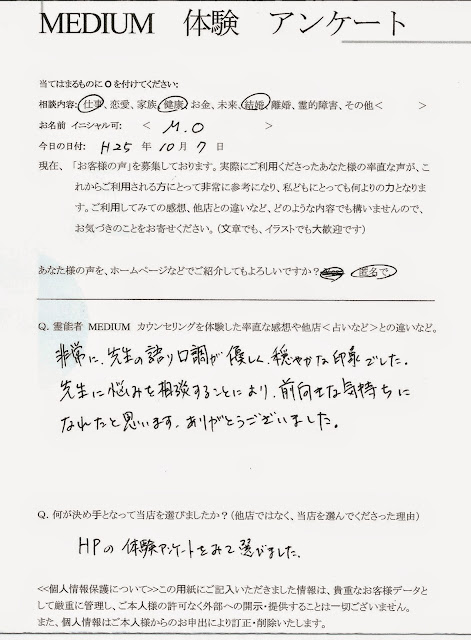 MEDIUM 体験 アンケート
当てはまるものに○を付けてください:
相談内容: 仕事、恋愛、家族、健康、お金、未来、結婚、離婚、霊的障害、その他< >
お名前 イニシャル可: < M.O >
今日の日付: H25 年 10 月 7 日
現在、「お客様の声」を募集しております。実際にご利用くださったあなた様の率直な声が、こ
れからご利用される方にとって非常に参考になり、私どもにとっても何よりの力となりま
す。ご利用してみての感想、他店との違いなど、どのような内容でも構いませんので、
お気づきのことをお寄せください。(文章でも、イラストでも大歓迎です)
あなた様の声を、ホームページなどでご紹介してもよろしいですか? 匿名で
Q. 霊能者 MEDIUM カウンセリングを体験した率直な感想や他店<占いなど>との違いなど。
非常に、先生の語り口調が優しく、穏やかな印象でした。
先生に悩みを相談することにより、前向きな気持ちに
なれたと思います。ありがとうございました。
Q. 何が決め手となって当店を選びましたか?(他店ではなく、当店を選んでくださった理由)
HPの体験アンケートをみて選びました。
<<個人情報保護について>>この用紙にご記入いただきました情報は、貴重なお客様データと
して厳重に管理し、ご本人様の許可なく外部への開示・提供することは一切ございません。
また、個人情報はご本人様からのお申出により訂正・削除いたします。